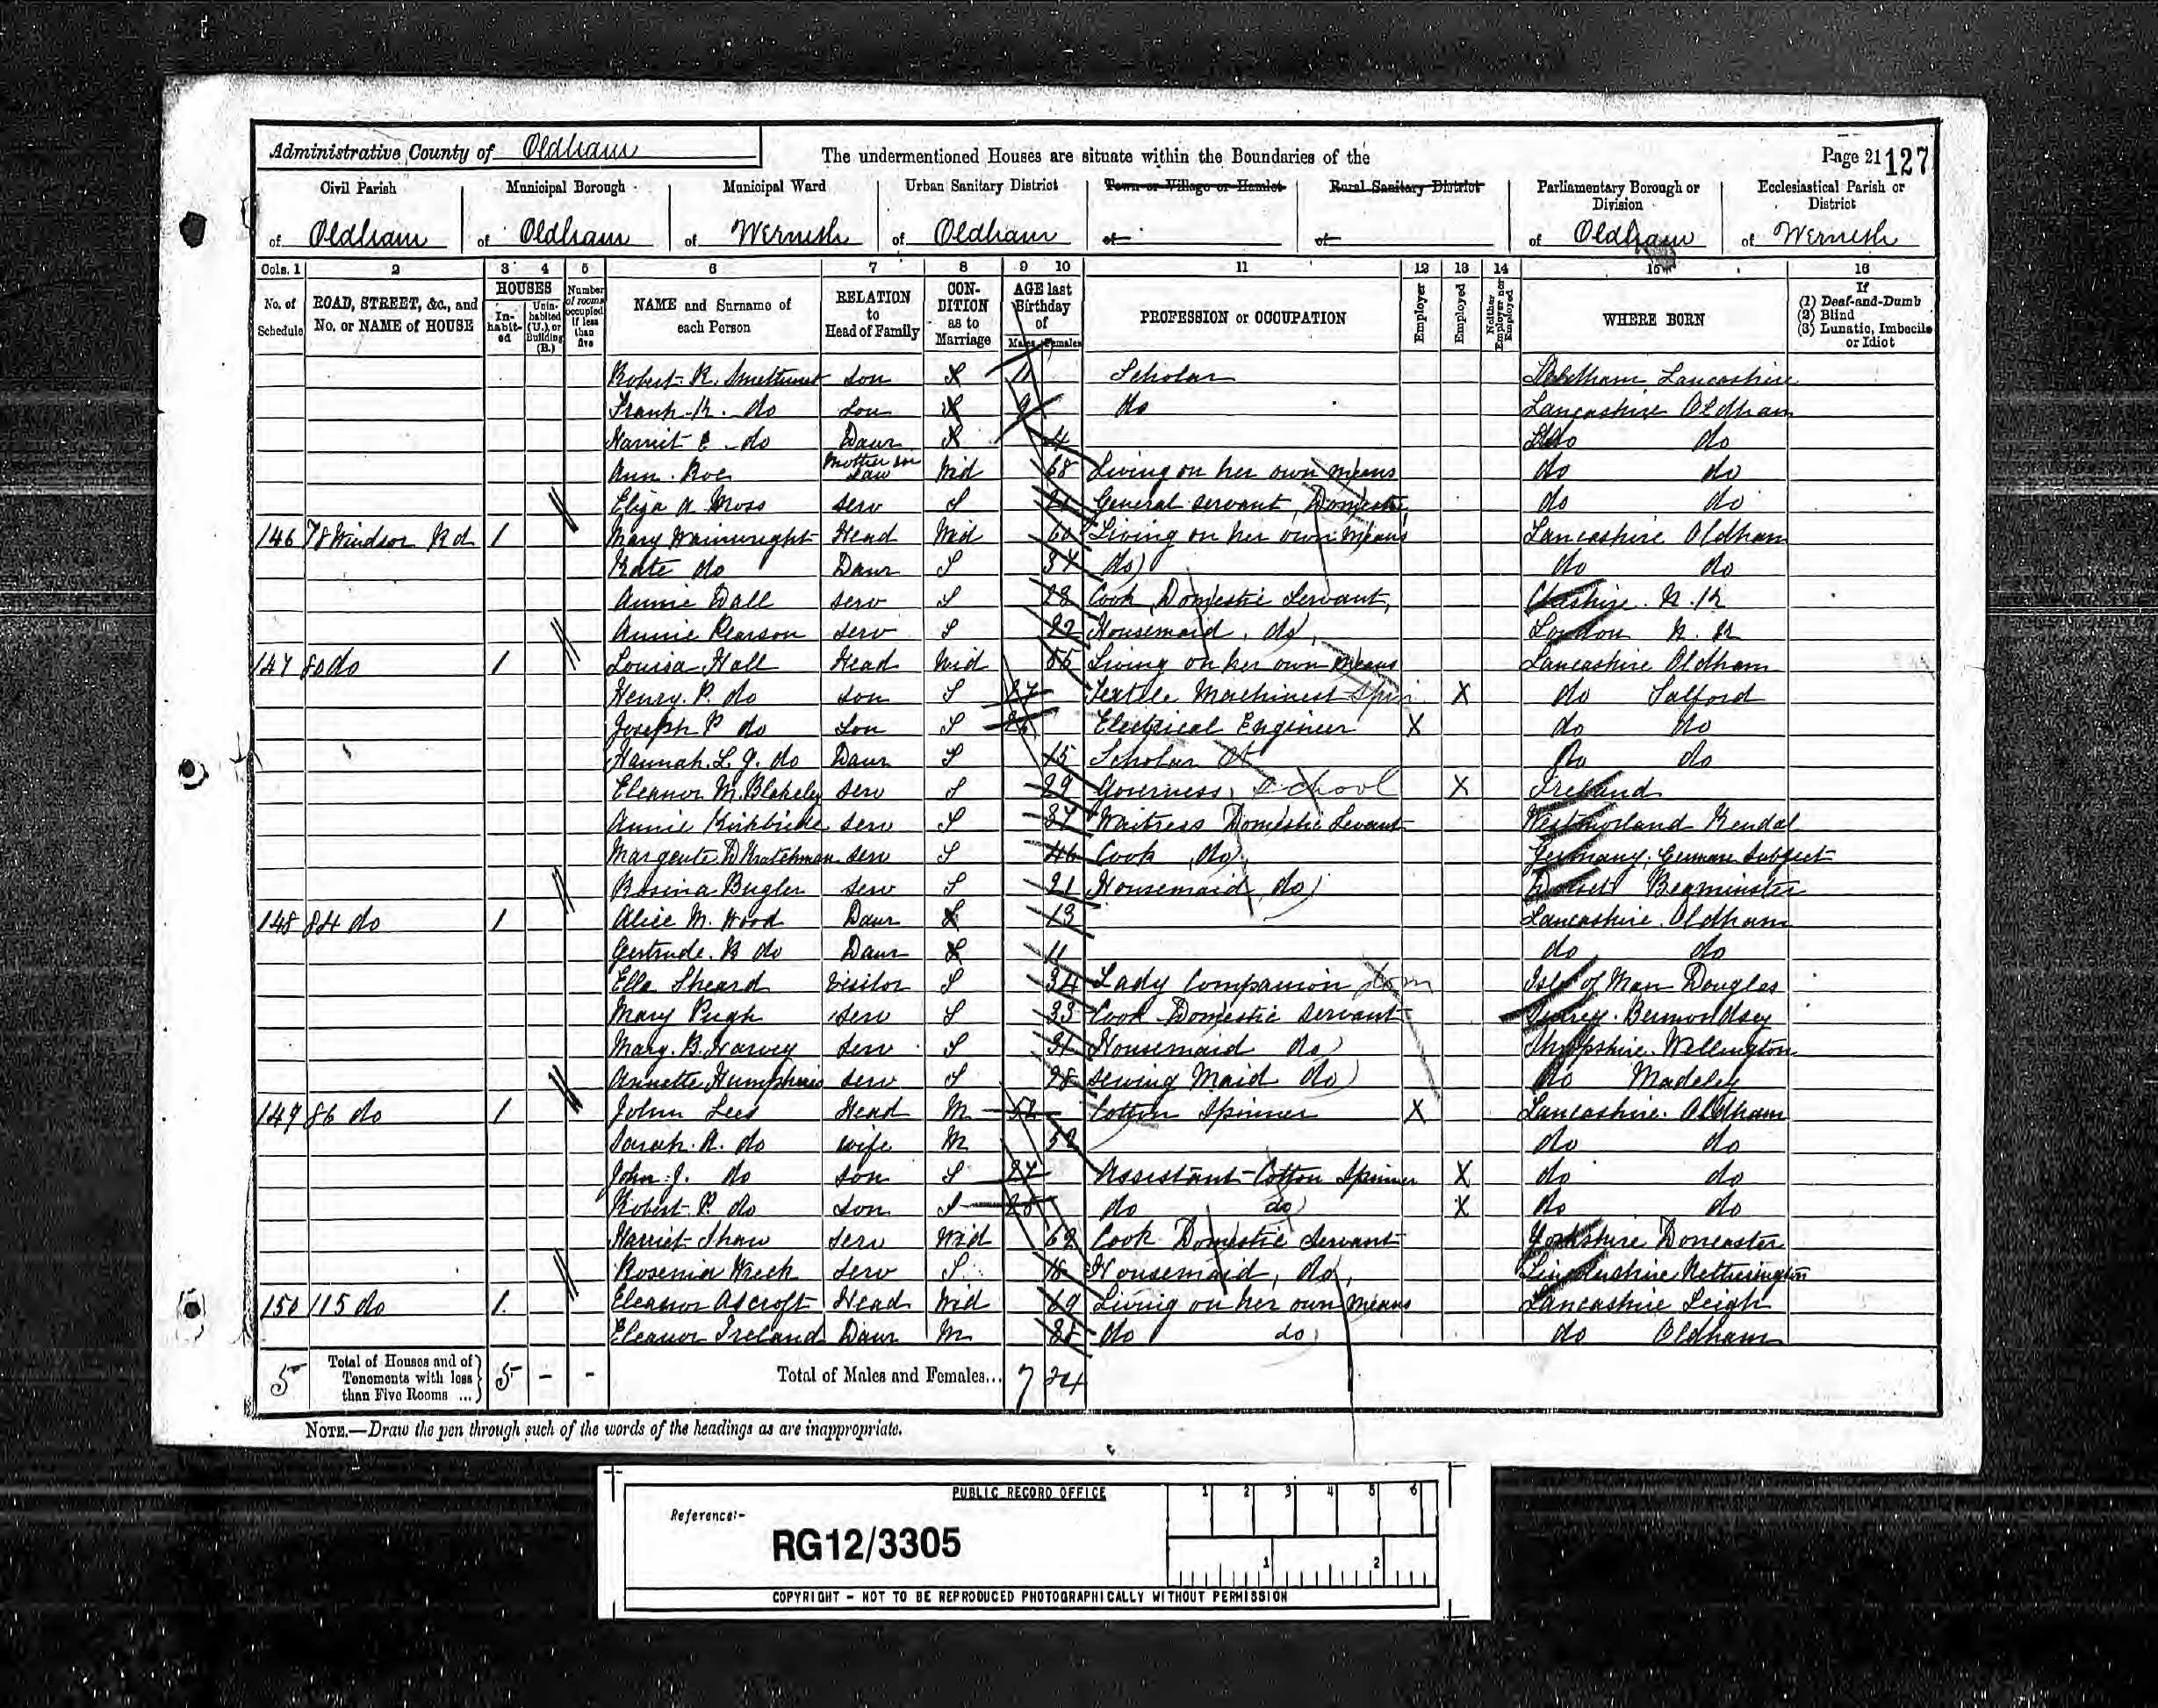 Administrative County of Oldham
The undermentioned Houses are situate within the Boundaries of the
Page 21 127
Civil Parish Municipal Borough Municipal Ward Urban Sanitary District Town or Village or Hamlet Rural Sanitary District Parliamentary Borough or Division Ecclesiastical Parish or District
of Oldham of Oldham of Werneth of Oldham of of of Oldham of Werneth
Cols. 1 2 3 4 5 6 7 8 9 10 11 12 13 14 15 16
No. of Schedule ROAD, STREET, &c., and No. or NAME of HOUSE HOUSES Inhabited Uninhabited (U.), or Building (B.) Number of rooms occupied if less than five NAME and Surname of each Person RELATION to Head of Family CONDITION as to Marriage AGE last Birthday of Males Females PROFESSION or OCCUPATION Employer Employed Neither Employer nor Employed WHERE BORN If (1) Deaf-and-Dumb (2) Blind (3) Lunatic, Imbecile or Idiot
Robert R. Smethurst Son 11 Scholar Lancashire
Frank H. do Son 9 do Lancashire Oldham
Harriet E. do Daur 4 do do
Ann Roe Mother in Law Wid 68 Living on her own means do do
Eliza A Moss Serv S General Servant, Domestic do do
146 78 Windsor Rd 1 Mary Wainwright Head Wid 60 Living on her own means Lancashire Oldham
Kate do Daur S 37 do do do
Annie Dall Serv S 28 Cook Domestic Servant, Cheshire N.K
Annie Pearson Serv S 22 Housemaid, do, London N.K
147 80 do 1 Louisa Hall Head Wid 55 Living on her own means Lancashire Oldham
Henry P. do Son S 27 Textile Machinest X do Salford
Joseph P do Son S Electrical Engineer X do do
Hannah L. G. do Daur S 15 Scholar do do
Eleanor M. Blakeley Serv S 29 Governess, School X Ireland
Annie Kirkbride Serv S 37 Waitress Domestic Servant Westmorland Kendal
Serv S 46 Cook, do, Germany, German Subject
Rosina Bugler Serv S 21 Housemaid, do Dorset Beaminster
148 84 do 1 Alice M. Wood Daur 13 Lancashire Oldham
Gertrude B do Daur 11 do do
Ella Sheard Visitor S 34 Lady Companion dom Isle of Man Douglas
Mary Pugh Serv S 33 Cook Domestic Servant Surrey Bermondsey
Mary B. Harvey Serv S 31 Housemaid do Shropshire Wellington
Annette Humphries Serv S 28 Sewing Maid do do Madeley
149 86 do 1 John Lees Head M 52 Cotton Spinner X Lancashire Oldham
Sarah A. do Wife M 52 do do
John J. do Son S 27 Assistant Cotton Spinner X do do
Robert P. do Son S 25 do do X do do
Harriet Shaw Serv Wid 62 Cook Domestic Servant Yorkshire Doncaster
Serv S 18 Housemaid, do, Lincolnshire
150 115 do 1 Eleanor Ascroft Head Wid 69 Living on her own means Lancashire Leigh
Eleanor Ireland Daur M do do do Oldham
5 Total of Houses and of Tenements with less than Five Rooms ... 5 - - Total of Males and Females... 7 24
NOTE.—Draw the pen through such of the words of the headings as are inappropriate.
PUBLIC RECORD OFFICE
1 2 3 4 5 6
Reference:-
RG12/3305
1 2
COPYRIGHT - NOT TO BE REPRODUCED PHOTOGRAPHICALLY WITHOUT PERMISSION